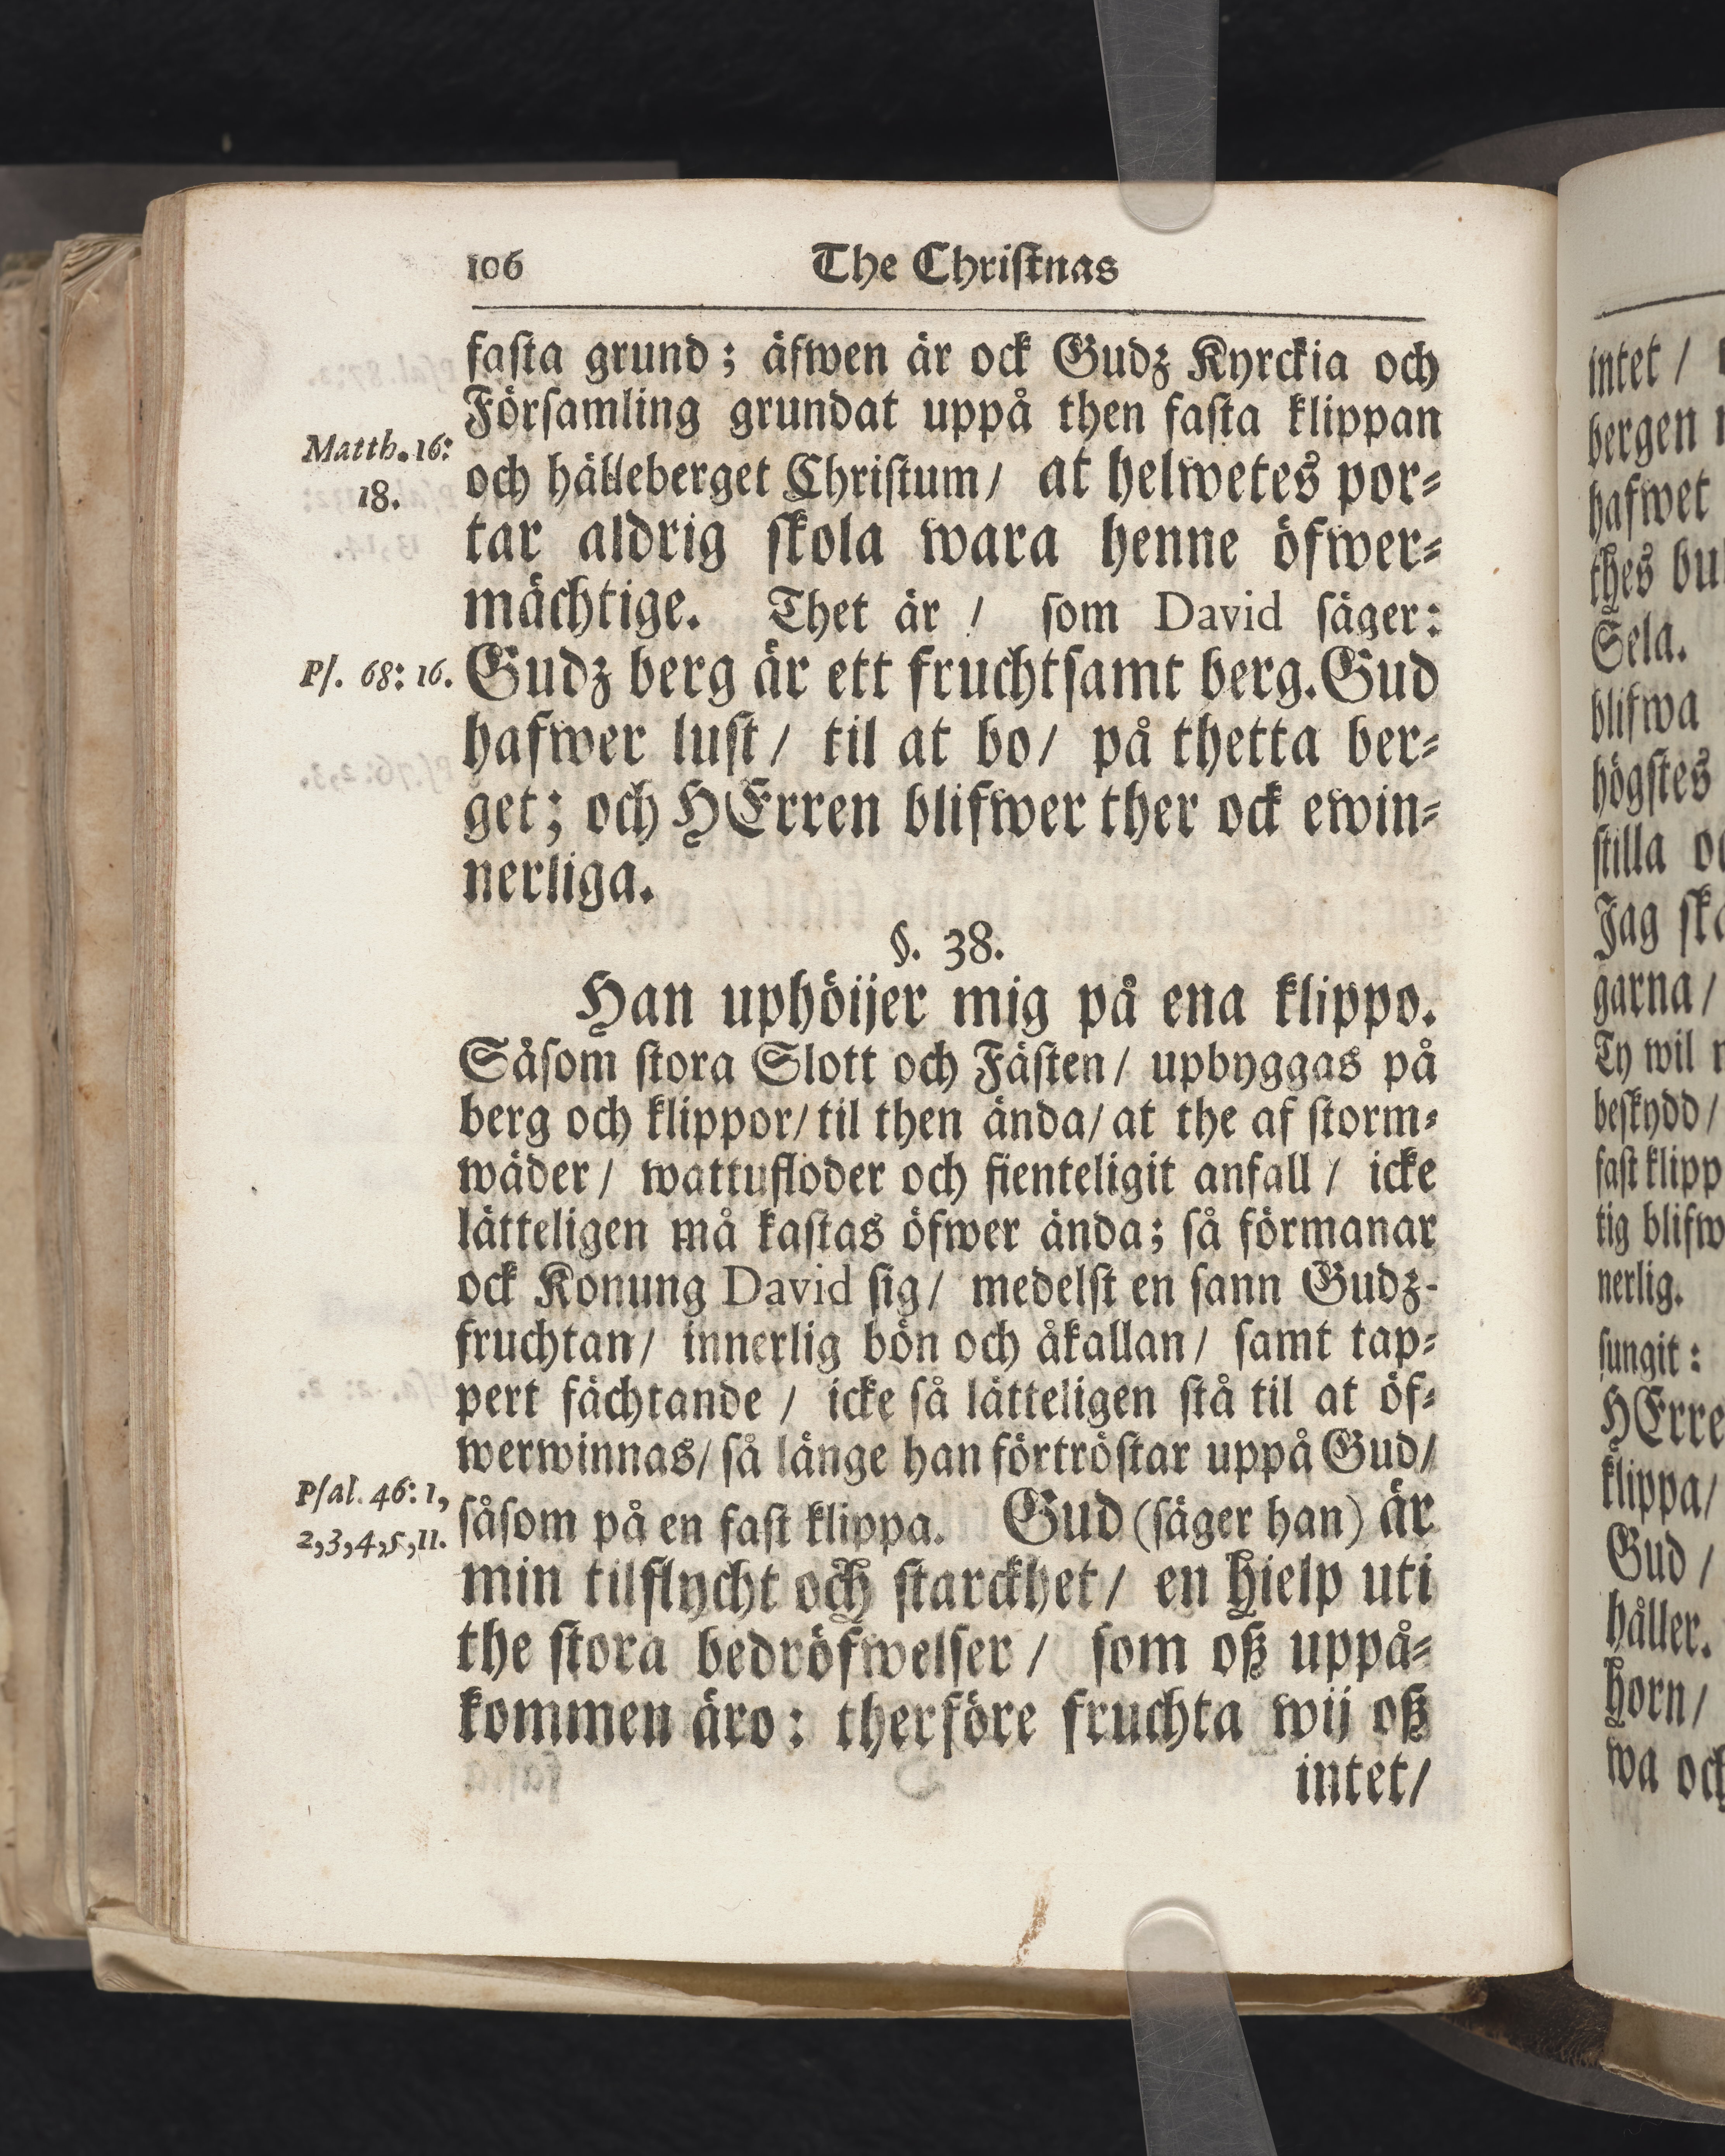 106 The Christnas
fasta grund; äfwen är ock Gudz Kyrckia och
Församling grundat uppå then fasta klippan
Matth. 16:
18.
och hälleberget Christum/ at helwetes por⸗
tar aldrig skola wara henne öfwer⸗
mächtige. Thet är / som David säger:
Ps. 68: 16.
Gudz berg är ett fruchtsamt berg. Gud
hafwer lust/ til at bo/ på thetta ber⸗
get; och HErren blifwer ther ock ewin⸗
nerliga.
§. 38.
Han uphöijer mig på ena klippo.
Såsom stora Slott och Fästen/ upbyggas på
berg och klippor/ til then ända/ at the af storm⸗
wäder/ wattufloder och fienteligit anfall / icke
lätteligen må kastas öfwer ända; så förmanar
ock Konung David sig/ medelst en sann Gudz-
fruchtan/ innerlig bön och åkallan/ samt tap⸗
pert fächtande / icke så lätteligen stå til at öf⸗
werwinnas/ så länge han förtröstar uppå Gud/
Psal. 46: 1,
2,3,4,5,11.
såsom på en fast klippa. Gud (säger han) är
min tilflycht och starckhet/ en hielp uti
the stora bedröfwelser / som oß uppå⸗
kommen äro: therföre fruchta wij oß
intet/
intet /
bergen
hafwet
thes
Sela.
blifwa
högstes
stilla
Jag
garna /
Ty wil
beskydd/
fast klipp
tig blifw
nerlig.
sungit:
HErre
klippa/
Gud /
håller.
horn/
wa